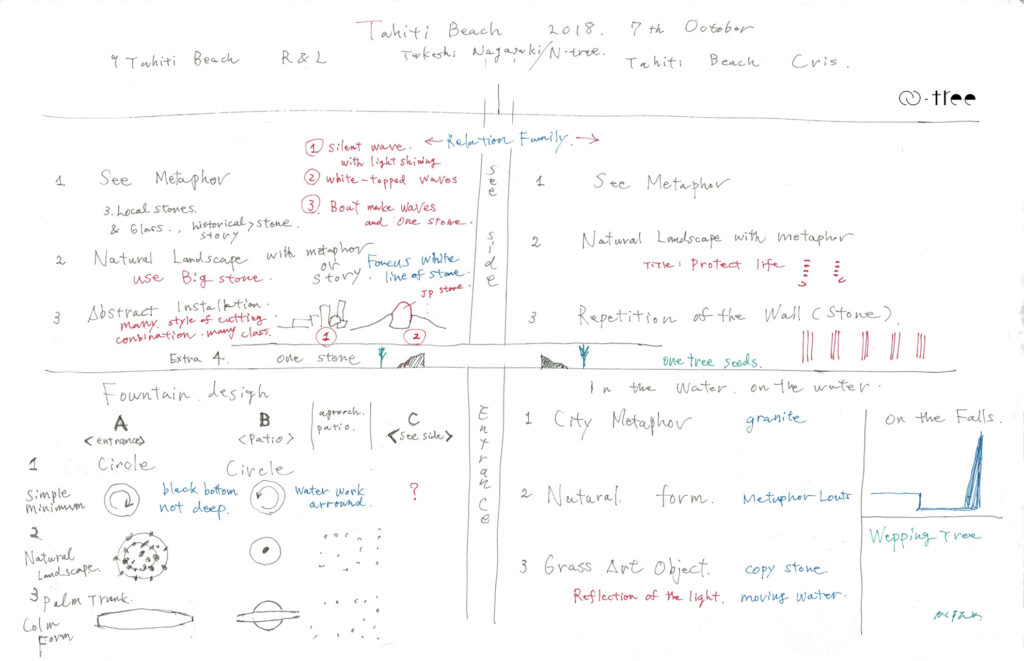 Tahiti Beach 2018. 7th October
9 Tahiti Beach R & L
Takeshi Nagasaki/N-tree.
Tahiti Beach Cris.
N-tree
← Relation Family. →
see side
1 See Metaphor
3. Local stones.
& Glass., historical > stone.
story
① silent wave.
with light shining
② white-topped waves
③ Boat make waves
and one stone.
2 Natural Landscape with metaphor
or
story.
use Big stone.
Foucus white
line of stone.
3 Abstract Installation.
many style of cutting
conbination. many class.
JP stone.
① ②
Extra 4. one stone
1 See Metaphor
2 Natural Landscape with metaphor
Title: Protect life
3 Repetition of the Wall (Stone).
one tree seeds.
Fountain desigh
A
<entrance>
B
<Patio>
aproach.
patio.
C
<see side>
1 Circle Circle
simple
minimum
black bottom
not deep.
water work
arround.
?
2.
Natural
Landscape.
3 palm Trunk.
Colm
Form
Entrance
In the water. on the water.
1 City Metaphor granite
2 Natural form. Metaphor Louts
3 Grass Art Object. copy stone.
Reflection of the light. moving water.
on the Falls.
Wepping Tree